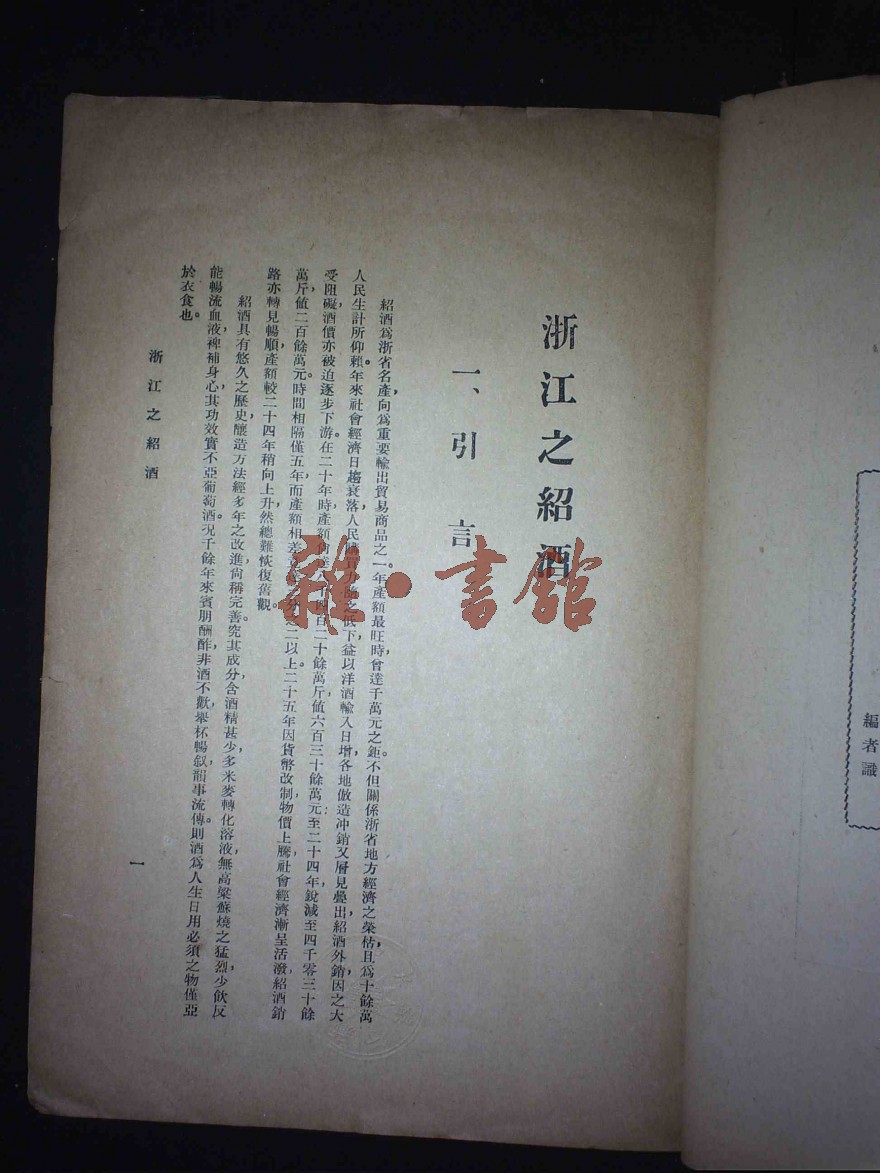 編者識
浙江之紹酒
一、引言
紹酒爲浙省名產,向爲重要輸出貿易商品之一。年產額最旺時曾達千萬元之鉅。不但關係浙省地方經濟之榮枯,且爲十餘萬
人民生計所仰賴。年來社會經濟日趨衰落,人民購買力隨之低下,益以洋酒輸入日增,各地倣造冲銷又層見疊出,紹酒外銷因之大
受阻礙,酒價亦被迫逐步下游。在二十年時產額尙達 四百二十餘萬斤,值六百三十餘萬元;至二十四年銳減至四千零三十餘
萬斤,值二百餘萬元。時間相隔僅五年,而產額相差 之二以上。二十五年因貨幣改制,物價上騰,社會經濟漸呈活潑,紹酒銷
路亦轉見暢順,產額較二十四年稍向上升,然總難恢復舊觀。
紹酒具有悠久之歷史,釀造方法經多年之改進,尙稱完善。究其成分,含酒精甚少,多米麥轉化溶液,無高粱蘇燒之猛烈,少飲反
能暢流血液,裨補身心,其功效實不亞葡萄酒。况千餘年來賓朋酬酢,非酒不歡,舉杯暢叙,韻事流傳。則酒爲人生日用必須之物,僅亞
於衣食也。
浙江之紹酒
一
雜·書館